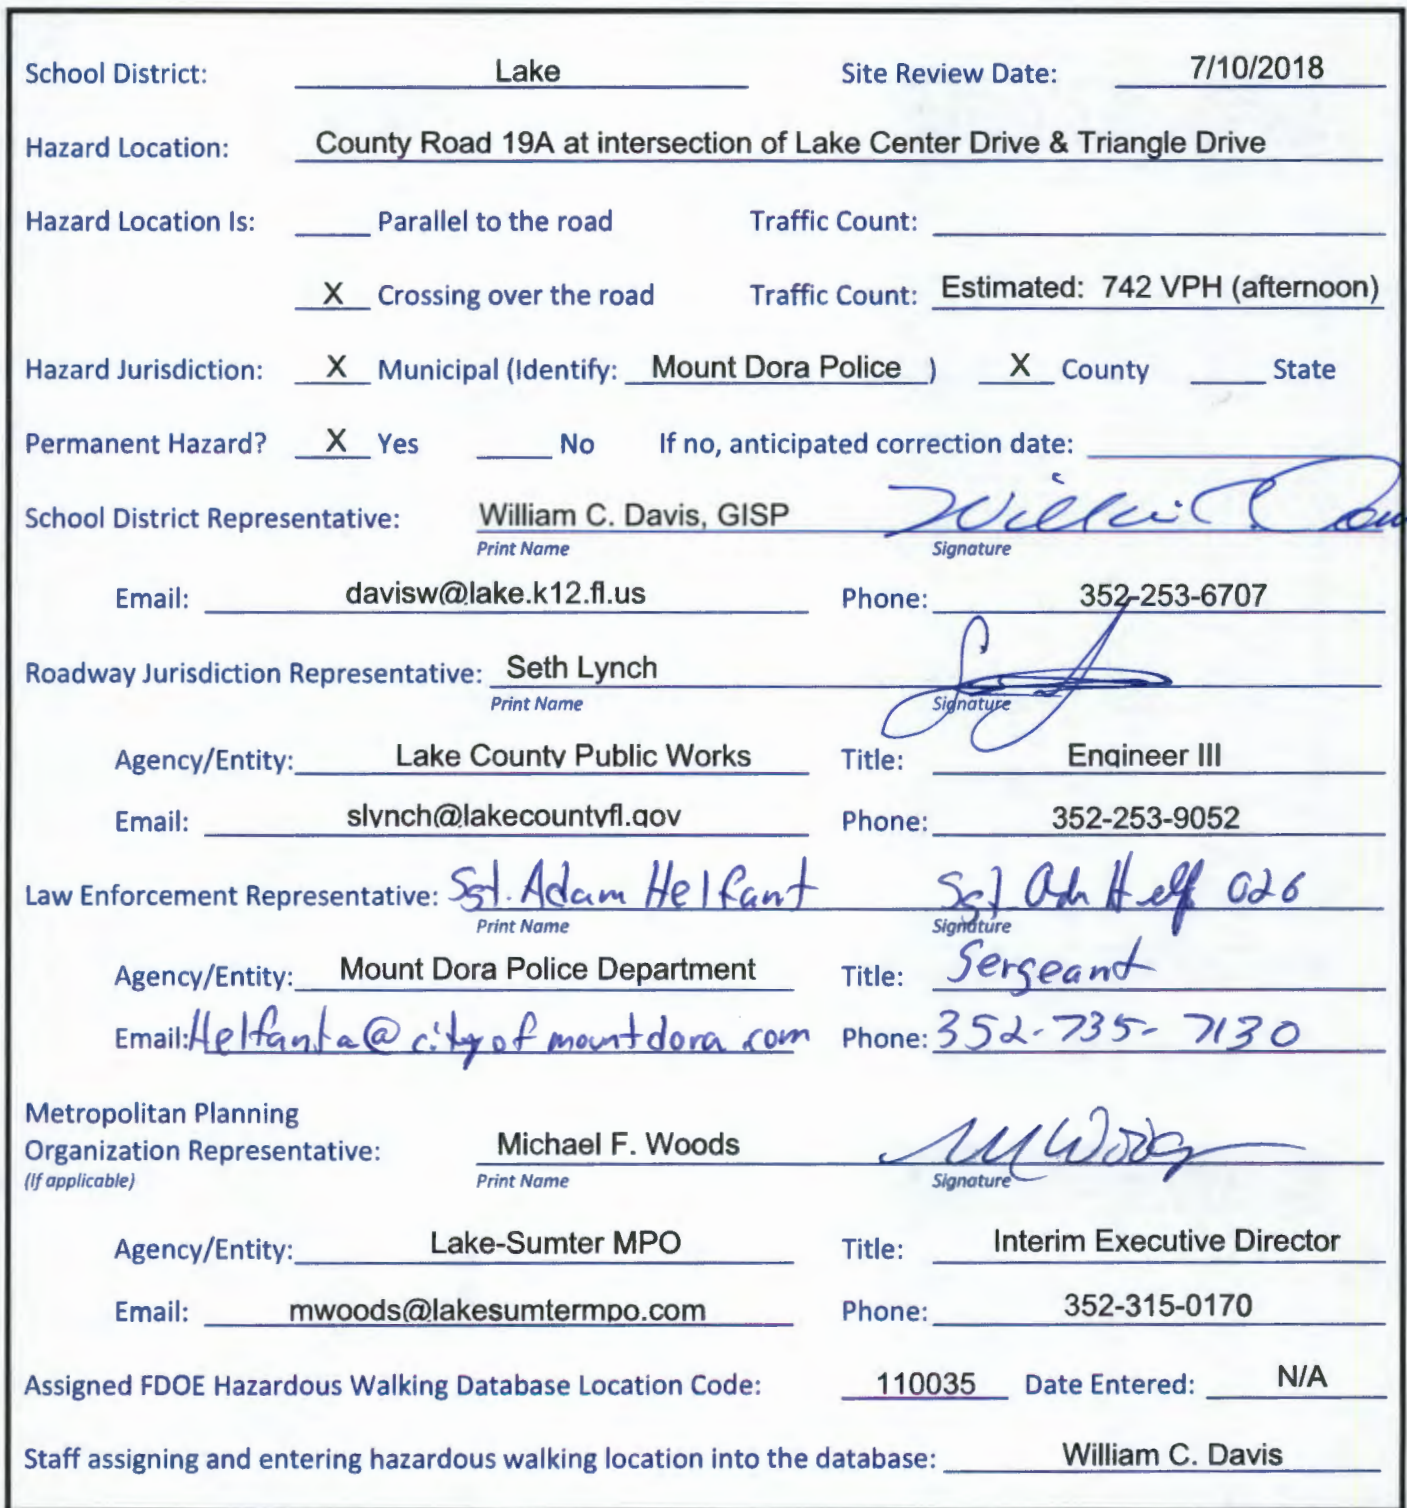 School District: Lake Site Review Date: 7/10/2018
Hazard Location: County Road 19A at intersection of Lake Center Drive & Triangle Drive
Hazard Location Is: Parallel to the road Traffic Count:
X Crossing over the road Traffic Count: Estimated: 742 VPH (afternoon)
Hazard Jurisdiction: X Municipal (Identify: Mount Dora Police ) X County State
Permanent Hazard? X Yes No If no, anticipated correction date:
School District Representative: William C. Davis, GISP
Print Name Signature
Email: davisw@lake.k12.fl.us Phone: 352-253-6707
Roadway Jurisdiction Representative: Seth Lynch
Print Name Signature
Agency/Entity: Lake County Public Works Title: Engineer III
Email: slynch@lakecountyfl.gov Phone: 352-253-9052
Law Enforcement Representative: Sgt. Adam Helfant Sgt 026
Print Name Signature
Agency/Entity: Mount Dora Police Department Title: Sergeant
Email: Helfanta@cityofmountdora.com Phone: 352-735-7130
Metropolitan Planning
Organization Representative: Michael F. Woods MWoods
(If applicable) Print Name Signature
Agency/Entity: Lake-Sumter MPO Title: Interim Executive Director
Email: mwoods@lakesumtermpo.com Phone: 352-315-0170
Assigned FDOE Hazardous Walking Database Location Code: 110035 Date Entered: N/A
Staff assigning and entering hazardous walking location into the database: William C. Davis